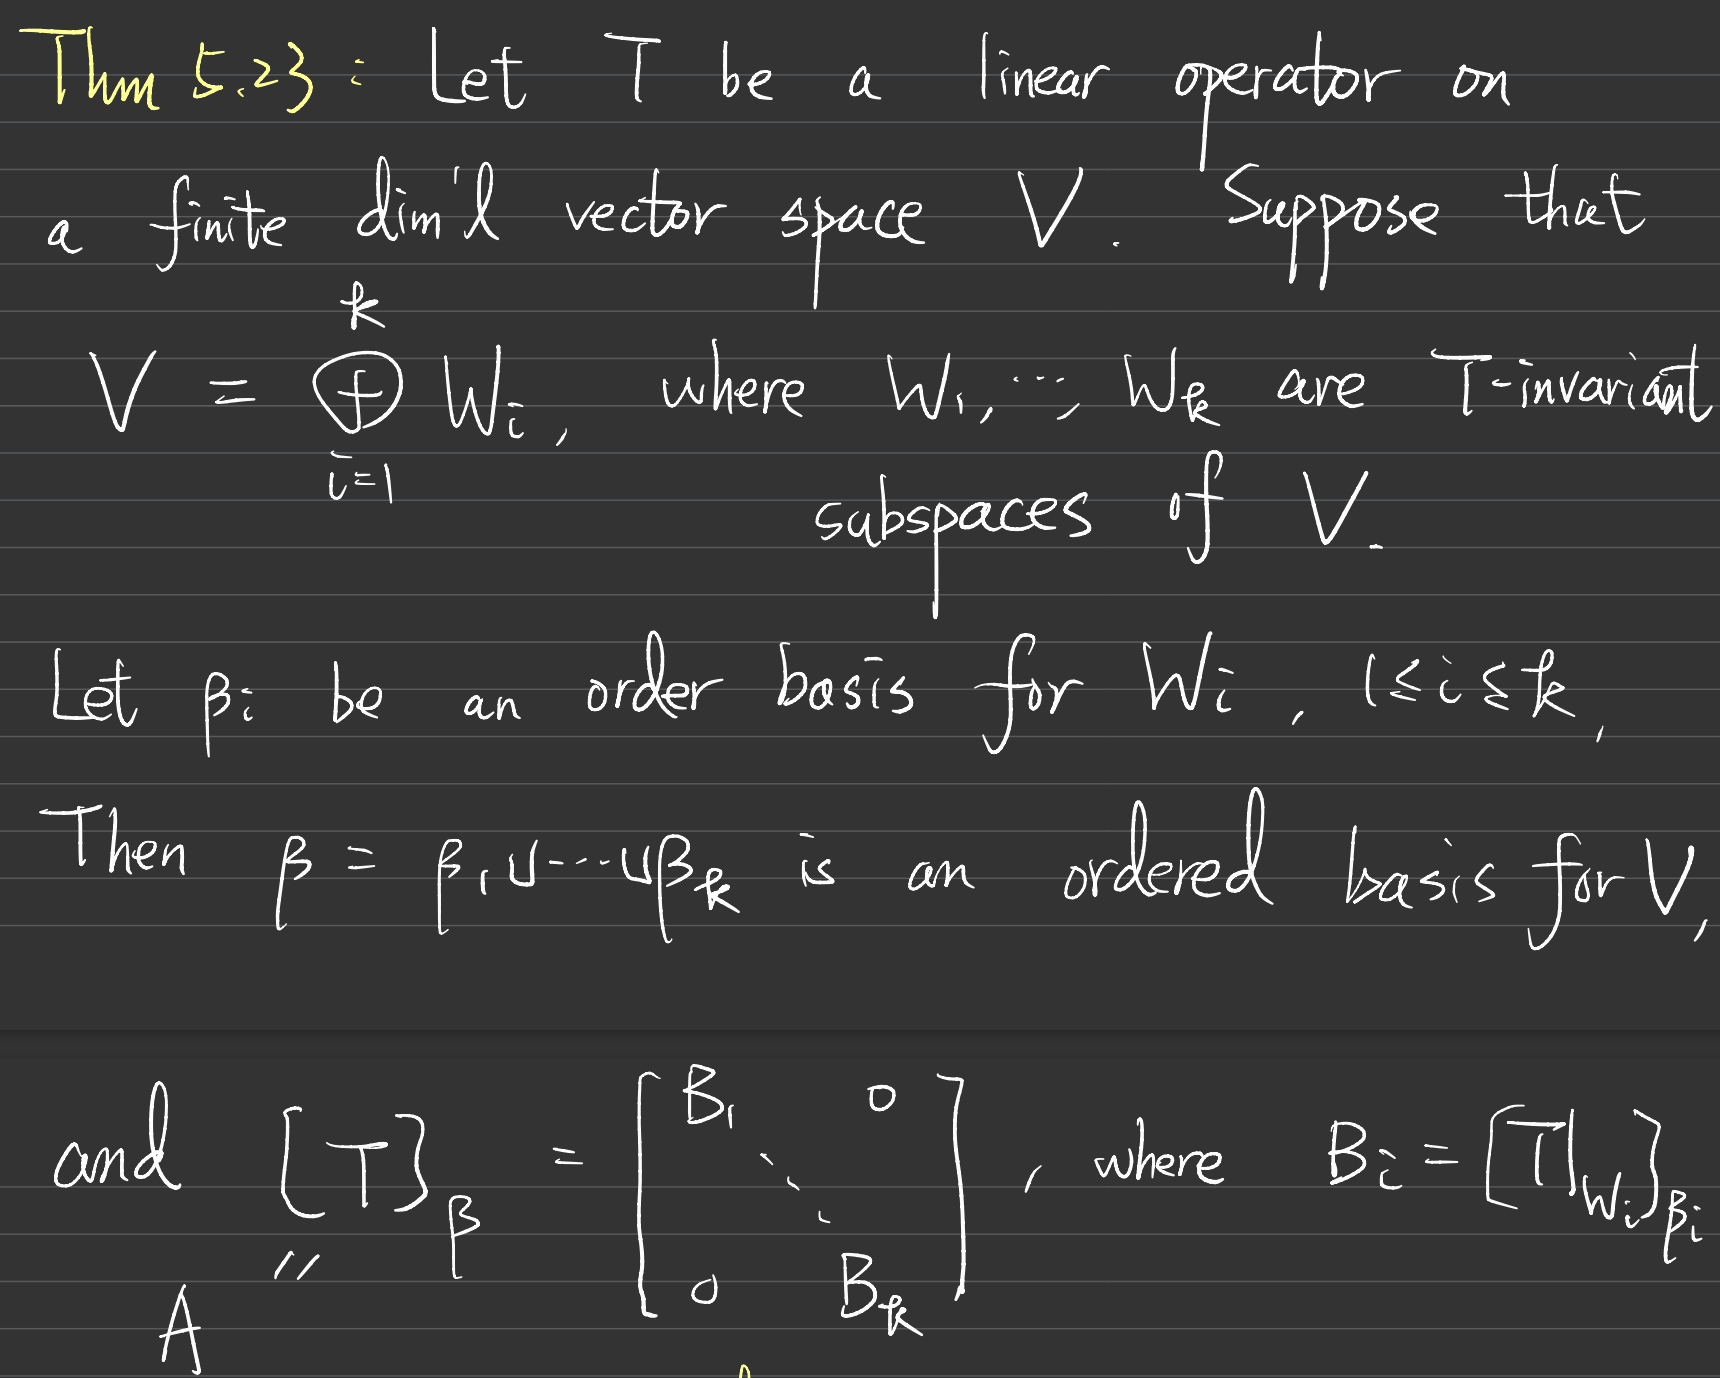 Thm 5.23 : Let T be a linear operator on
a finite dim'l vector space V. Suppose that
V = ⊕_{i=1}^{k} W_i, where W_1, ..., W_k are T-invariant
subspaces of V.
Let β_i be an order basis for W_i, 1 ≤ i ≤ k,
Then β = β_1 ∪ --- ∪ β_k is an ordered basis for V,
and [T]_β = [B_1 0 ⋱ 0 B_k], where B_i = [T|_{W_i}]_{β_i}
"
A